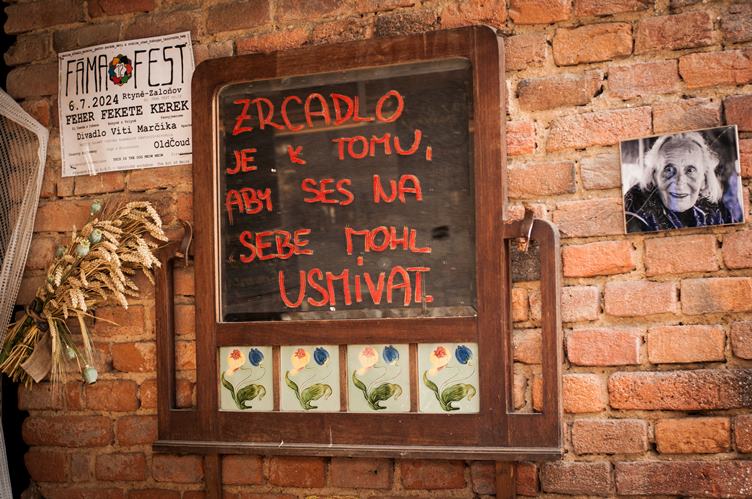 FAMA FEST
6.7.2024 Rtyně-Zaloňov
FEHER FEKETE KEREK
Divadlo Viti Marčíka
OldČoud
ZRCADLO
JE K TOMU,
ABY SES NA
SEBE MOHL
USMÍVAT.